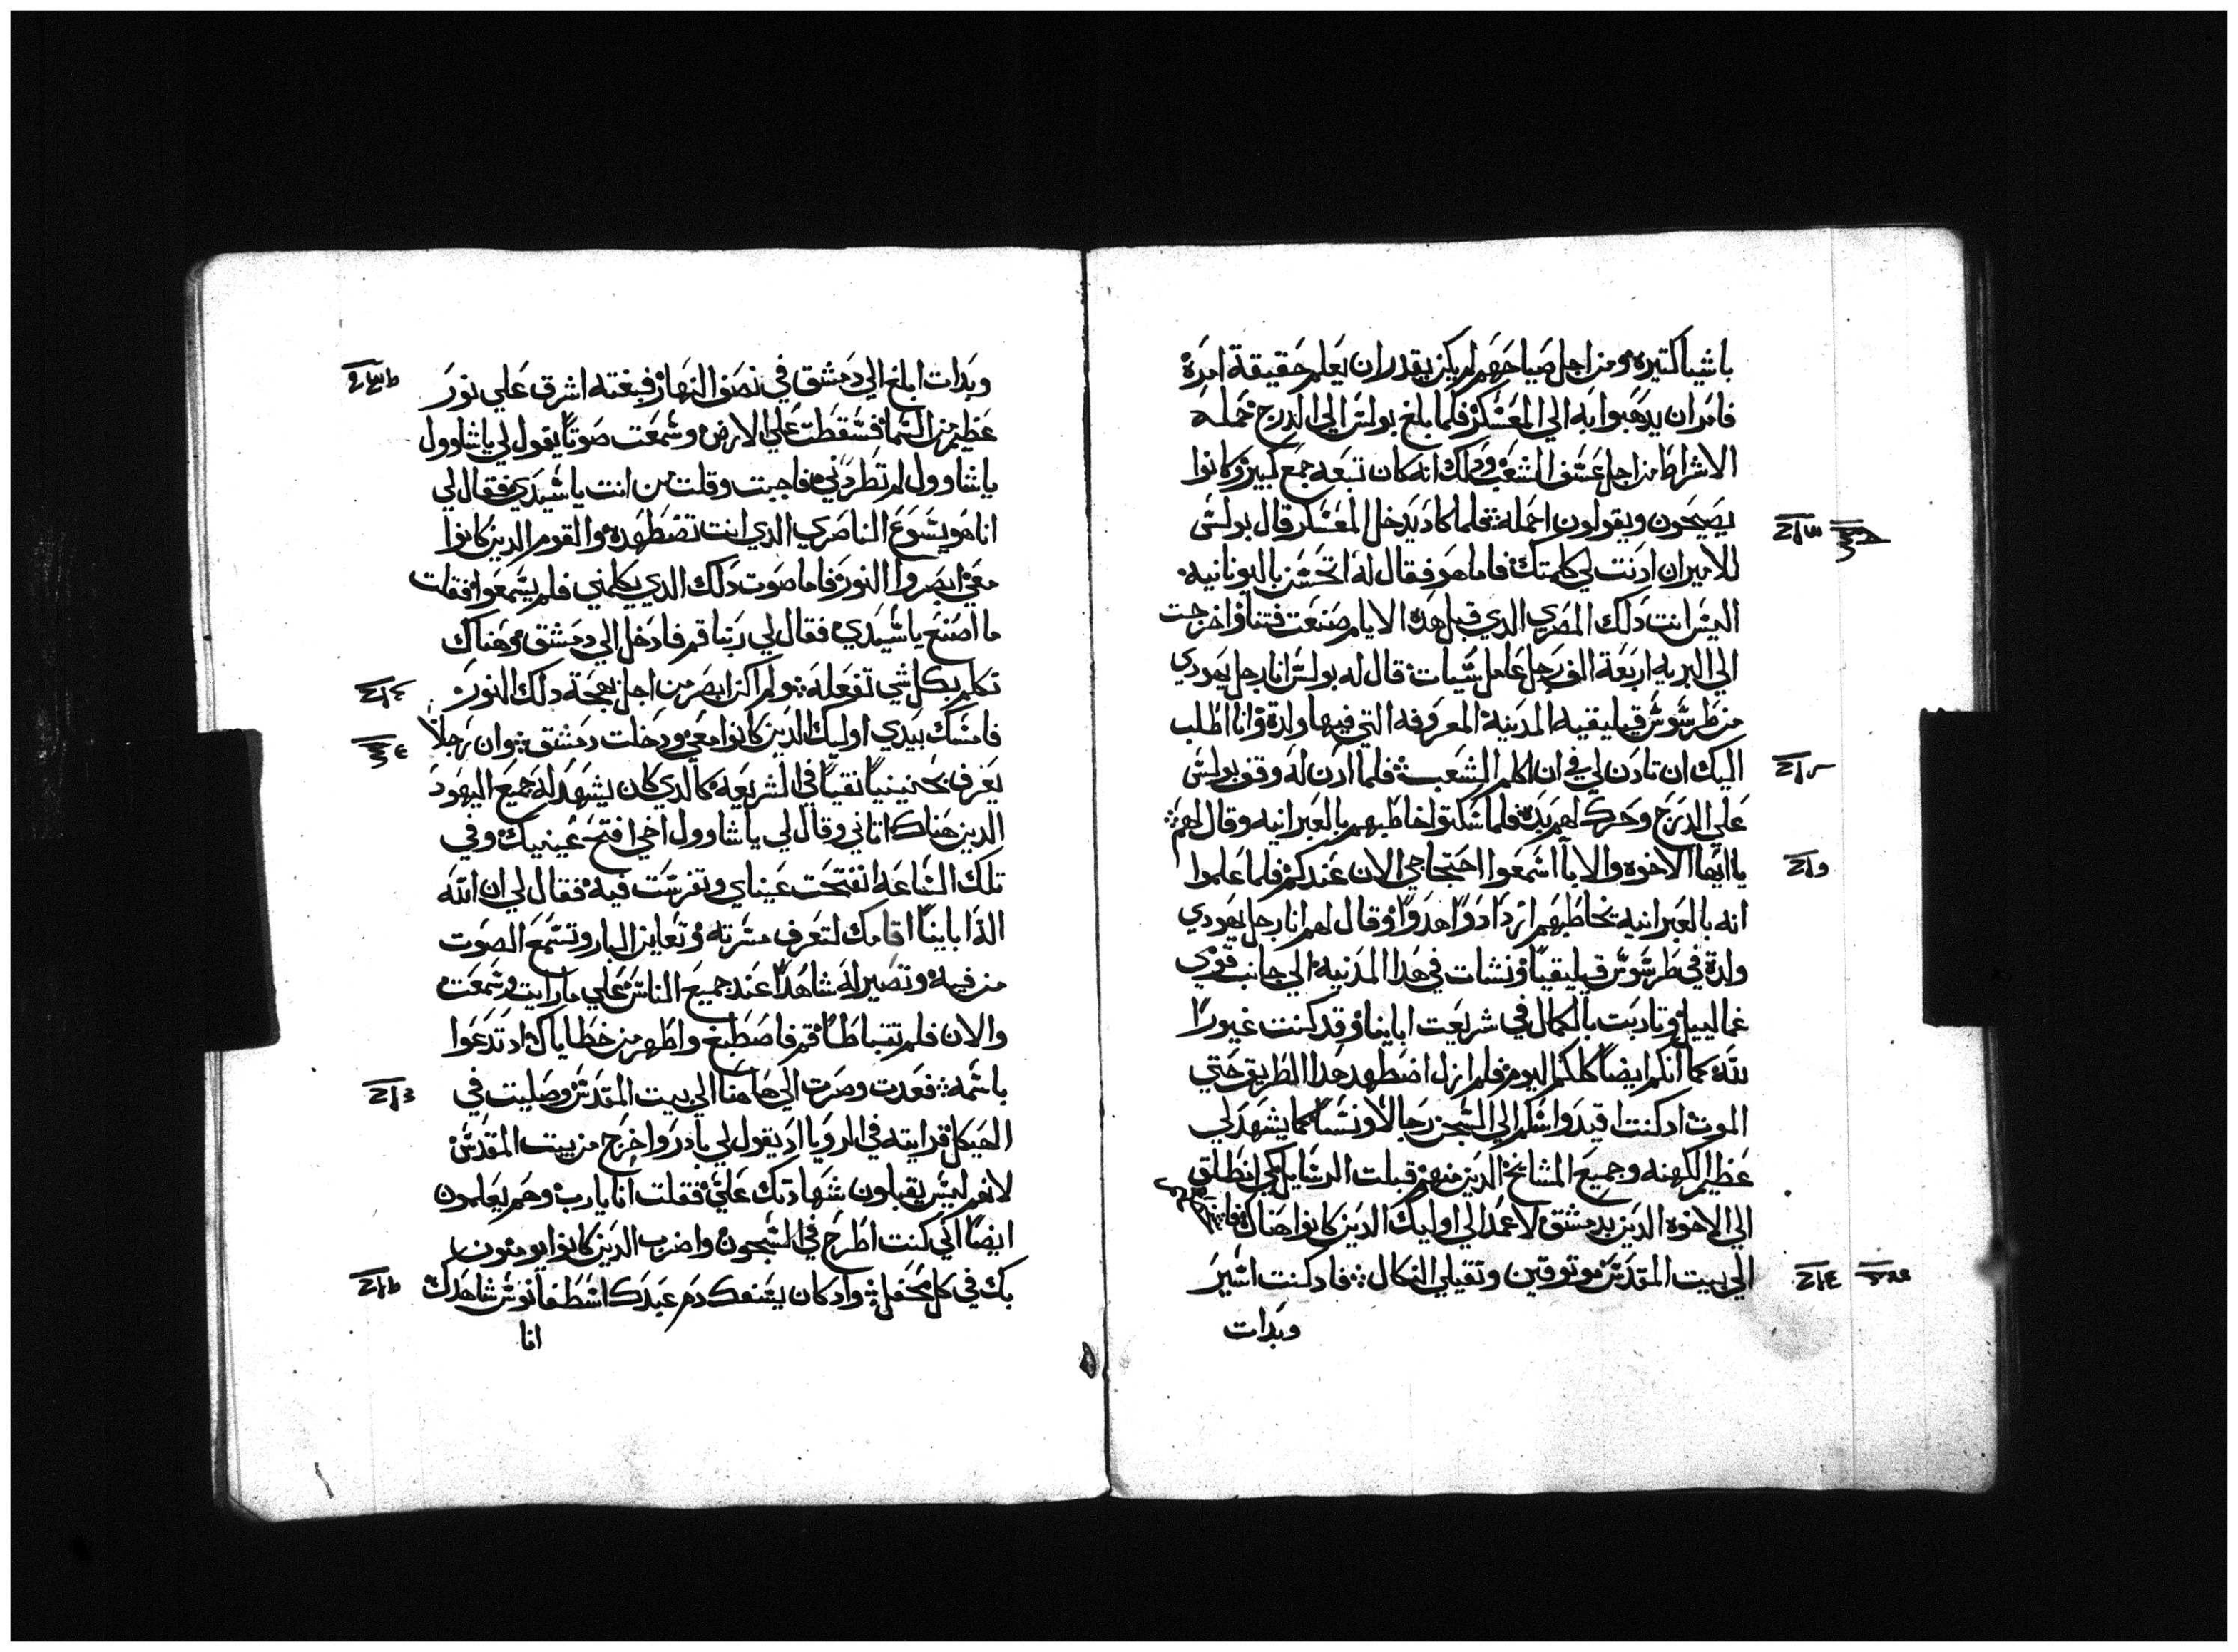 باشيا كتيره ومن اجل صياحهم لم يكن يقدر ان يعلم حقيقة امره
فامر ان يدهبوا به الي المعسكر فلما بلغ بولس الي الدرج حمله
الاشراط من اجل عسف الشعب ودلك انه كان تبعه جمع كبير وكانوا
يصيحون ويقولون احمله فلما كاد يدخل المعسكر قال بولس
للامير ان ادنت لي كلمتك فاما هو فقال له اتحسن باليونانيه
اليس انت دلك المصري الدي قبل هده الايام صنعت فتنا واخرجت
الي البريه اربعة الف رجل عامل سيات قال له بولس انا رجل يهودي
من طرسوس قيليقيه المدينه المعروفه التي فيها ولدة وانا اطلب
اليك ان تادن لي في ان اكلم الشعب فلما ادن له وقف بولس
علي الدرج وحرك لهم يده فلما سكتوا خاطبهم بالعبرانيه وقال لهم
يا ايها الاخوه والابا اسمعوا احتجاجي الان عندكم فلما علموا
انه بالعبرانيه يخاطبهم ازدادوا هدوا وقال لهم انا رجل يهودي
ولدة في طرسوس قيليقيا ونشات في هدا المدنيه الي جانب قدمي
غمالييل وتادبت بالكمال في شريعت اباينا وقد كنت غيورا
لله كما انكم ايضا كلكم اليوم فلم ازل اضطهد هدا الطريق حتي
الموت اد كنت اقيد واسلم الي السجن رجالا ونسا كما يشهد لي
عظيم الكهنه وجميع المشايخ الدين منهم قبلت الرسايل لكي انطلق
الي الاخوه الدين بدمشق لاعمد الي اوليك الدين كانوا هناك
الي بيت المقدس موتوقين وتقيلي النكال فاد كنت اسير
وبدات
وبدات ابلغ الي دمشق في نصف النهار فبغته اشرق علي نور
عظيم من السما فسقطت علي الارض وسمعت صوتا يقول لي يا شاوول
يا شاوول لم تطردني فاجبت وقلت من انت يا سيدي فقال لي
انا هو يسوع الناصري الدي انت تضطهده والقوم الدين كانوا
معي ابصروا النور فاما صوت دلك الدي يكلمني فلم يسمعوا فقلت
ما اصنع يا سيدي فقال لي ربنا قم فادخل الي دمشق وهناك
تكلم بكل شي تفعله ولم اكن ابصر من اجل بهجة دلك النور
فامسك بيدي اوليك الدين كانوا معي ودخلت دمشق وان رجلا
يعرف بحنينيا نقيا في الشريعه كالدي كان يشهد له جميع اليهود
الدين هناك اتاني وقال لي يا شاوول اخي افتح عينيك وفي
تلك الساعه انفتحت عيناي وتفرست فيه فقال لي ان الله
الاه اباينا اقامك لتعرف مسرته وتعاين البار وتسمع الصوت
من فيه وتصير له شاهدا عند جميع الناس علي ما رايت وسمعت
والان فلم تتباطا قم فاصطبغ واطهر من خطاياك اد تدعوا
باسمه فعدت وصرت الي هاهنا الي بيت المقدس وصليت في
الهيكل فرايته في الرويا اد يقول لي بادر واخرج من بيت المقدس
لانهم ليس يقبلون شهادتك علي فقلت انا يا رب وهم يعلمون
ايضا اني كنت اطرح في السجون واضرب الدين كانوا يومنون
بك في كل محفل واد كان يسفك دم عبدك اسطفانوس شاهدك
انا